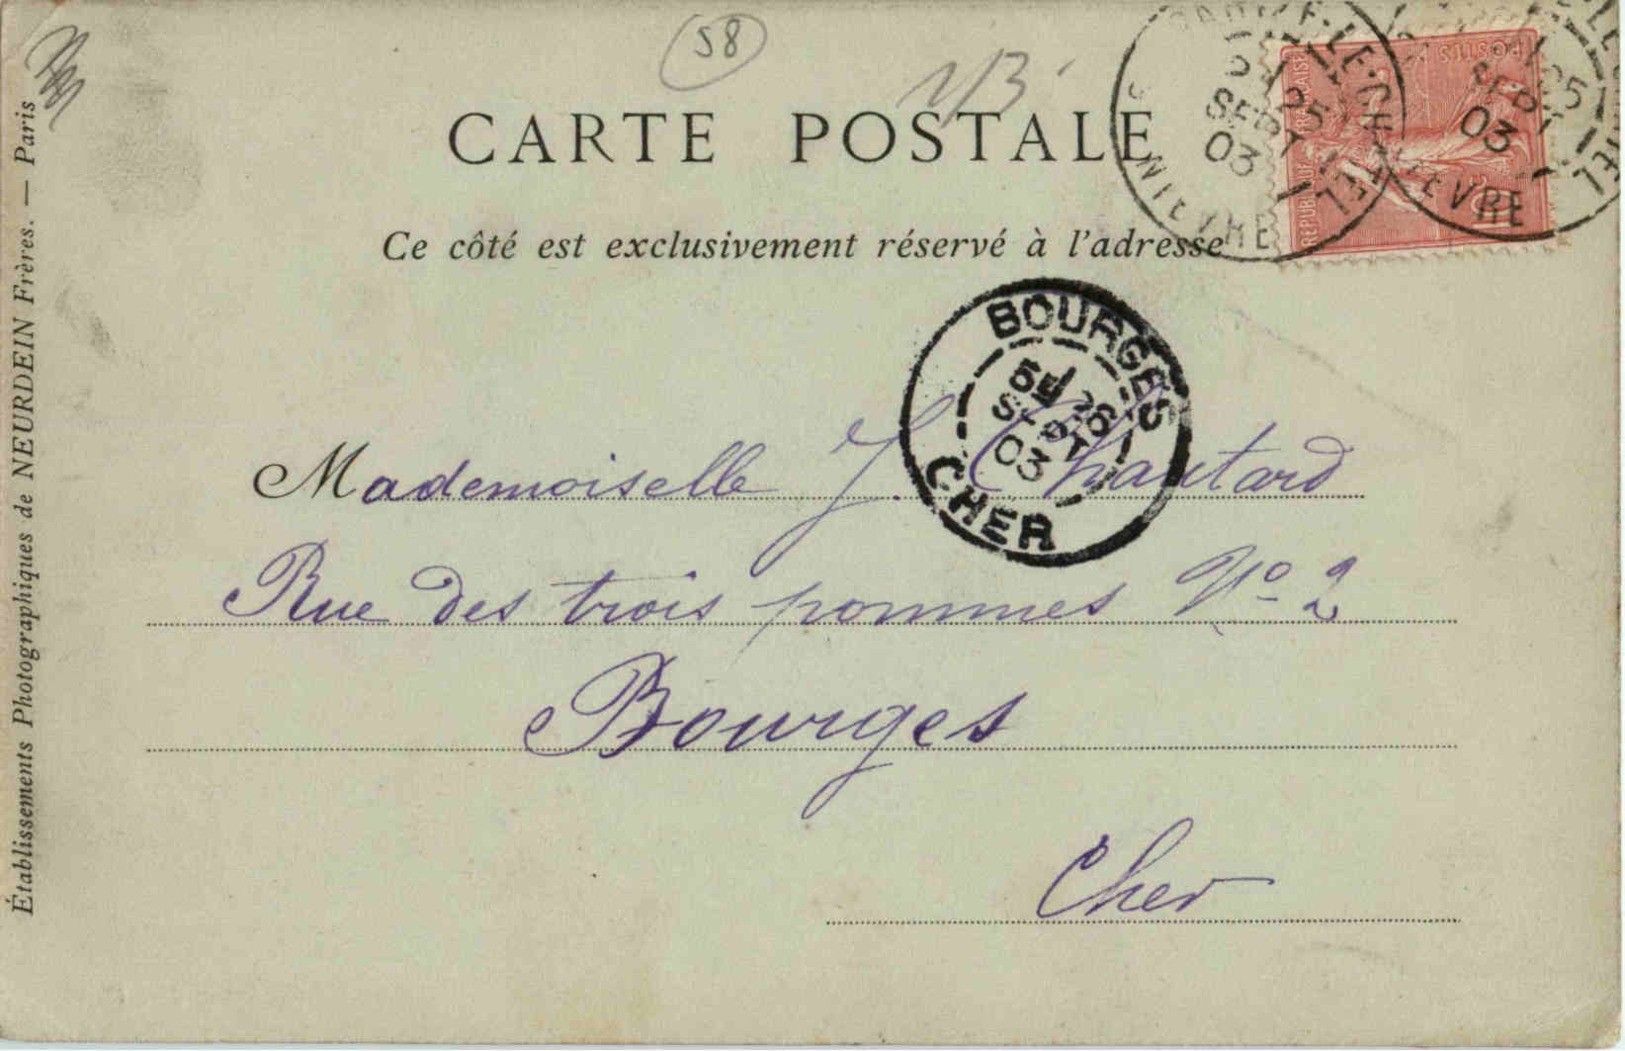 58
1/3
CARTE POSTALE
Ce côté est exclusivement réservé à l'adresse
RÉPUBLIQUE FRANÇAISE
POSTES
25
SEPT
03
NIEVRE
25
SEPT
03
NIEVRE
BOURGES
5E 26
SEPT
03
CHER
Mademoiselle J. Chautard
Rue des trois pommes No 2
Bourges
Cher
Établissements Photographiques de NEURDEIN Frères. — Paris